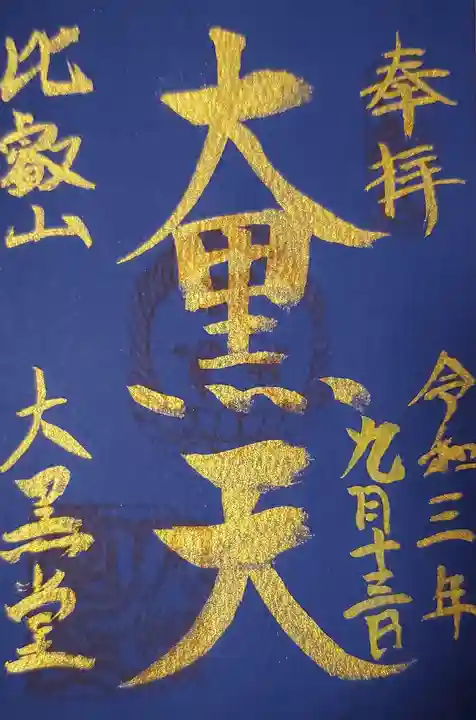 奉拝
令和三年
九月十三日
大黒天
比叡山
大黒堂